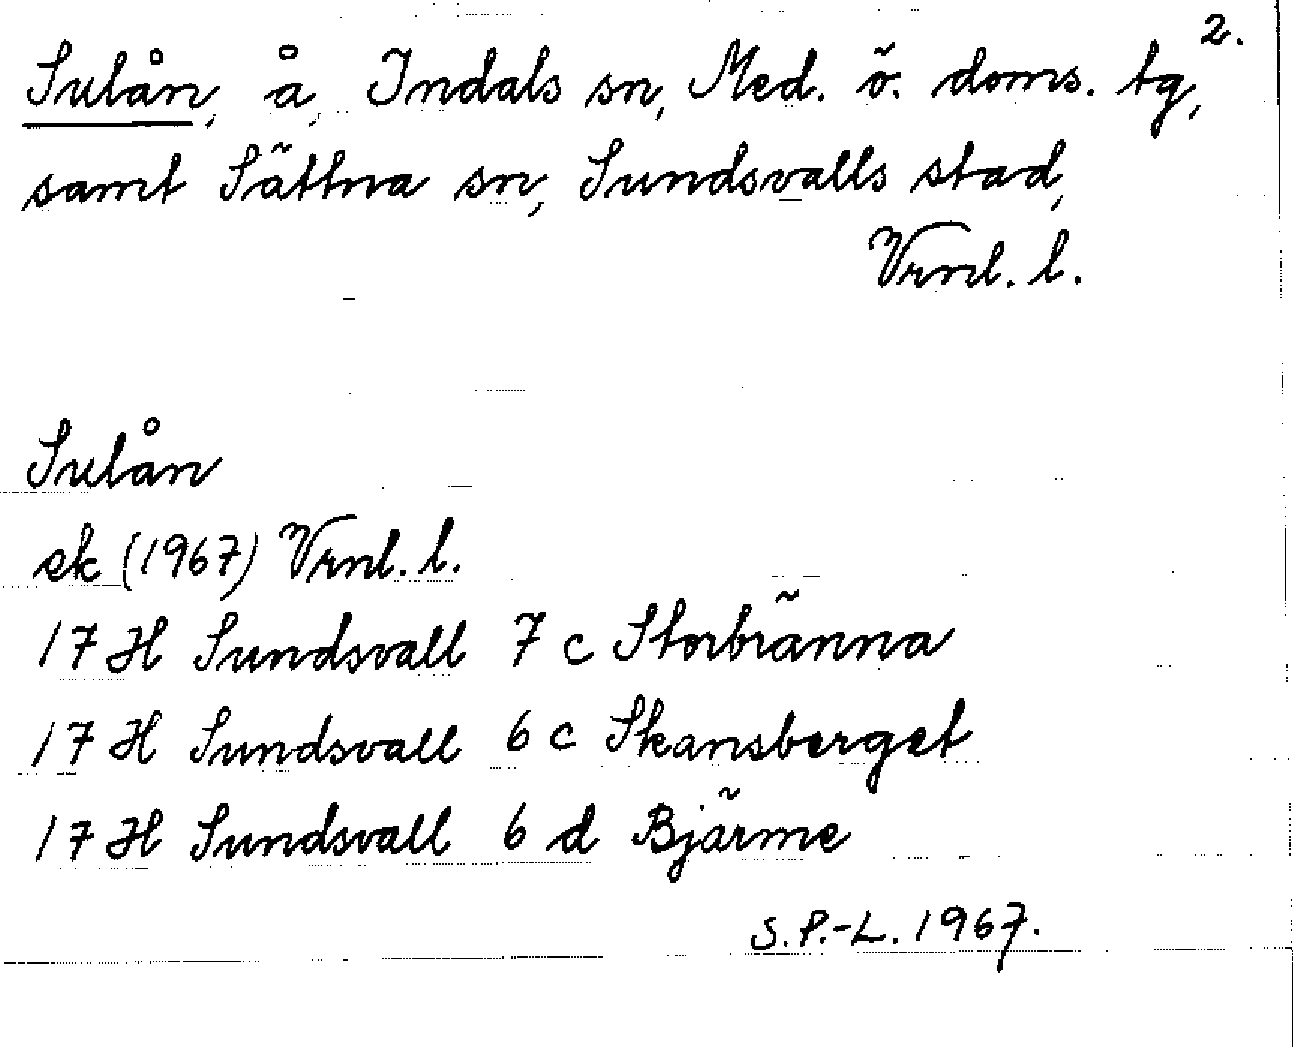 2.
Sulån, å, Indals sn, Med. ö. doms. tg,
samt Sättna sn, Sundsvalls stad,
Vrnl. l.
Sulån
ek (1967) Vrnl. l.
17 H Sundsvall 7 c Storbränna
17 H Sundsvall 6 c Skansberget
17 H Sundsvall 6 d Bjärme
S.P.-L. 1967.